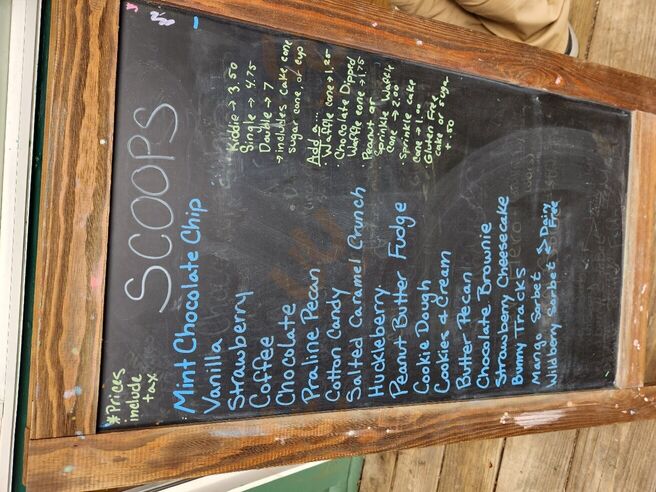 SCOOPS
*Prices
include
tax
Mint Chocolate Chip
Vanilla
Strawberry
Coffee
Chocolate
Praline Pecan
Cotton Candy
Salted Caramel Crunch
Huckleberry
Peanut Butter Fudge
Cookie Dough
Cookies & Cream
Butter Pecan
Chocolate Brownie
Strawberry Cheesecake
Bunny Tracks
Mango Sorbet > Dairy
Wildberry Sorbet Free
Kiddie → 3.50
Single → 4.75
Double → 7
→ includes cake, cone
sugar cone, or cup
Add a...
· Waffle cone → 1.25
· Chocolate Dipped
Waffle cone → 1.75
· Peanut or
Sprinkle Waffle
cone → 2.00
· Sprinkle cake
cone → 1.00
Gluten Free
cake or sugar
+ .50